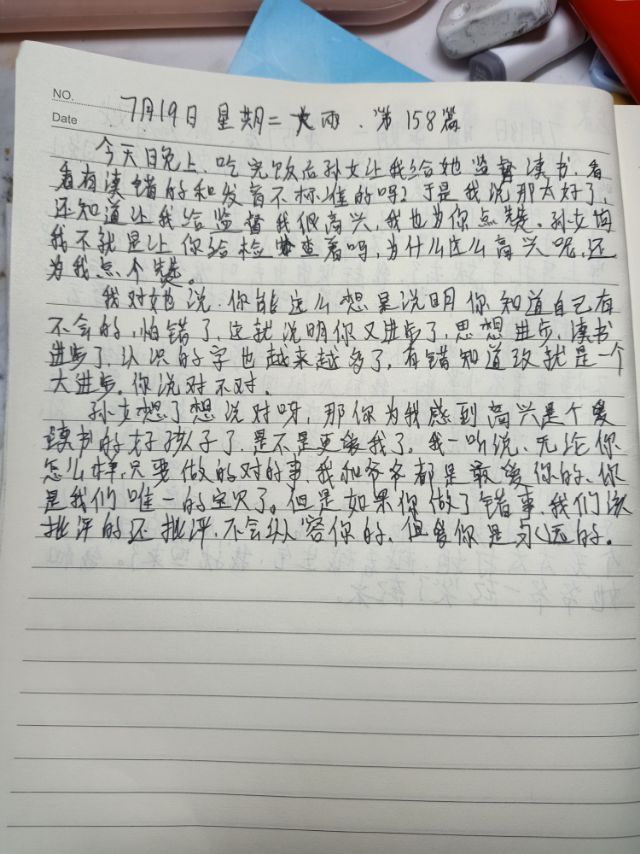 NO.
Date
7月19日 星期二 大雨. 第158篇
今天日晚上.吃完饭后孙女让我给她监督读书.看
看有读错的和发音不标准的吗?于是我说那太好了,
还知道让我给监督我很高兴,我也为你点赞.孙女问
我不就是让你给检查着吗,为什么这么高兴呢,还
为我点个赞。
我对她说.你能这么想是说明你知道自己有
不会的,怕错了,这就说明你又进步了,思想进步,读书
进步了,认识的字也越来越多了,有错知道改就是一个
大进步.你说对不对.
孙女想了想说对呀,那你为我感到高兴是个爱
读书的好孩子了.是不是更爱我了.我一听说.无论你
怎么样,只要做的对的事.我和爷爷都是最爱你的.你
是我们唯一的宝贝了。但是如果你做了错事.我们该
批评的还批评.不会纵容你的.但爱你是永远的。